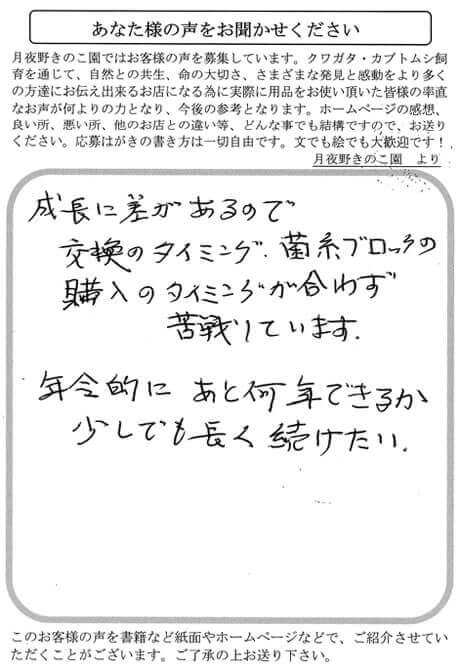 あなた様の声をお聞かせください
月夜野きのこ園ではお客様の声を募集しています。クワガタ・カブトムシ飼
育を通じて、自然との共生、命の大切さ、さまざまな発見と感動をより多く
の方達にお伝え出来るお店になる為に実際に用品をお使い頂いた皆様の率直
なお声が何よりの力となり、今後の参考となります。ホームページの感想、
良い所、悪い所、他のお店との違い等、どんな事でも結構ですので、お送り
ください。応募はがきの書き方は一切自由です。文でも絵でも大歓迎です！
月夜野きのこ園　より
成長に差があるので
交換のタイミング．菌糸ブロックの
購入のタイミングが合わず
苦戦しています．
年令的に あと何年できるか
少しでも長く続けたい．
このお客様の声を書籍など紙面やホームページなどで、ご紹介させてい
ただくことがございます。ご了承の上お送り下さい。